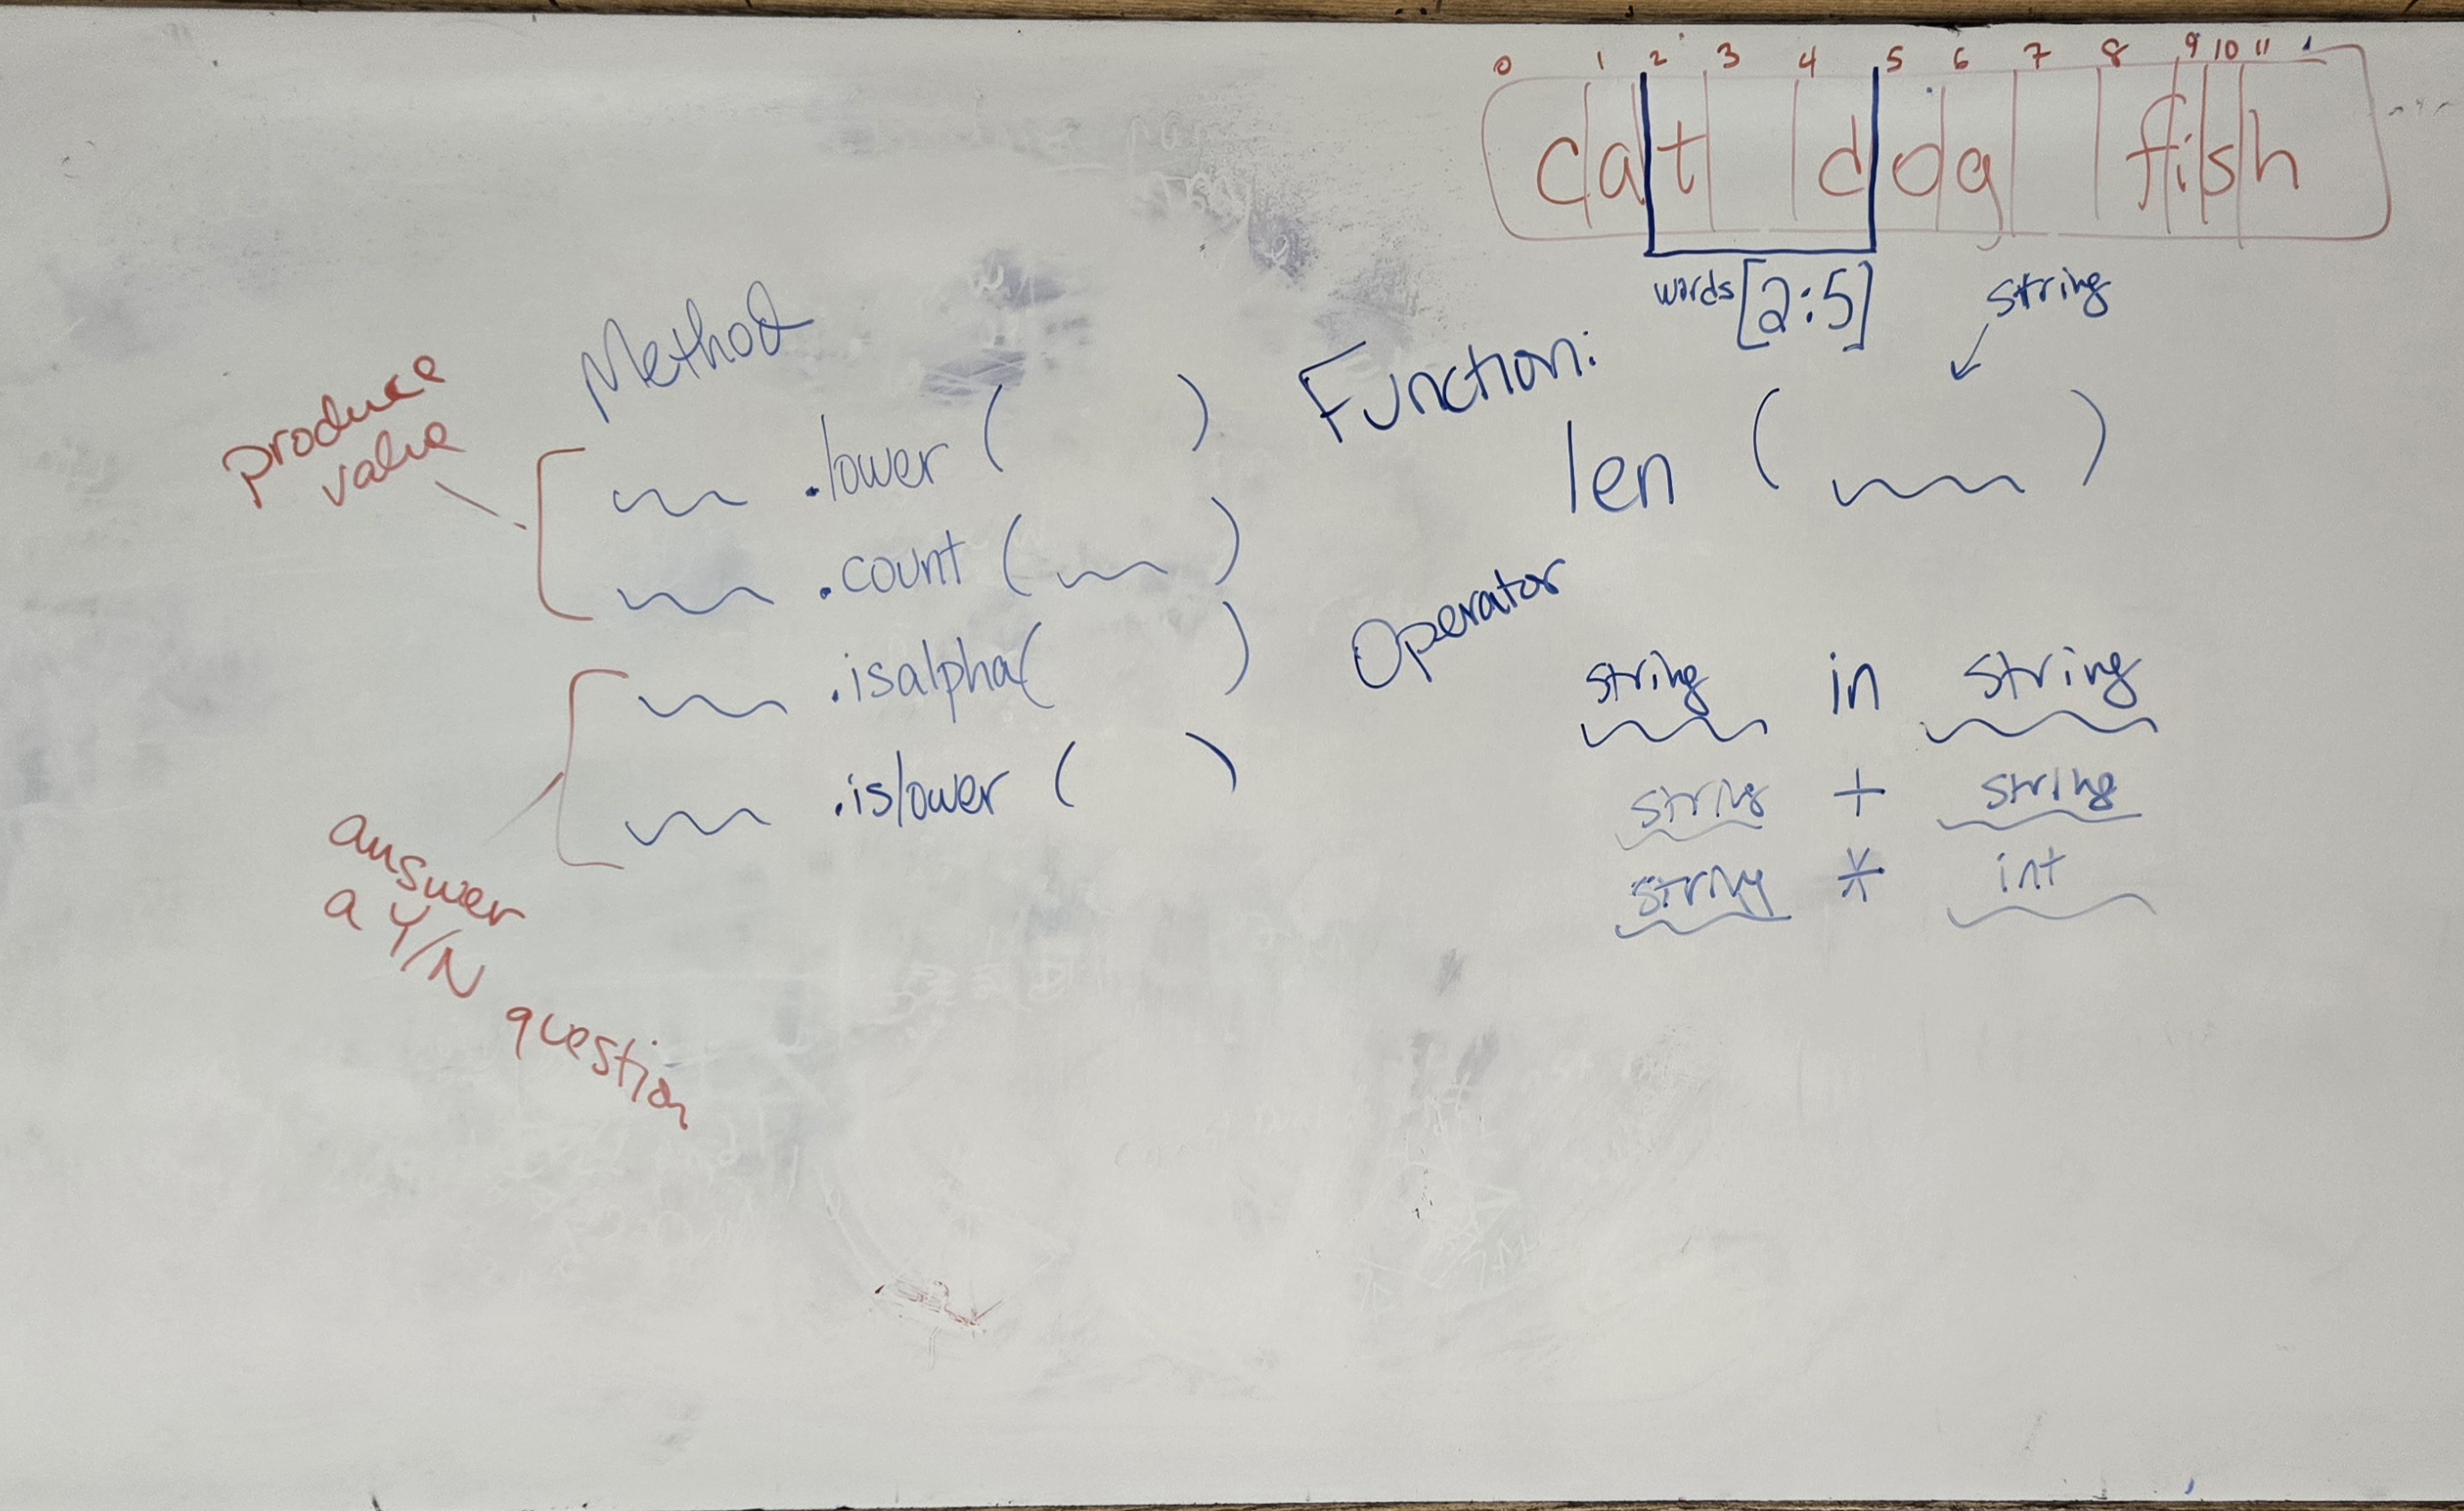 0 1 2 3 4 5 6 7 8 9 10 11
cat dog fish
words[2:5]
string
Method
produce
value
.lower ( )
.count ( )
.isalpha( )
.islower ( )
answer
a Y/N
question
Function:
len ( )
Operator
string in string
string + string
string * int